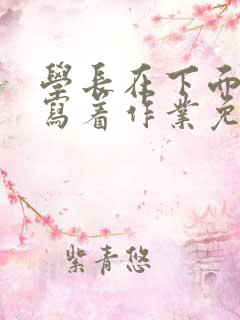 學長在下面
寫着作業免
紫青悠